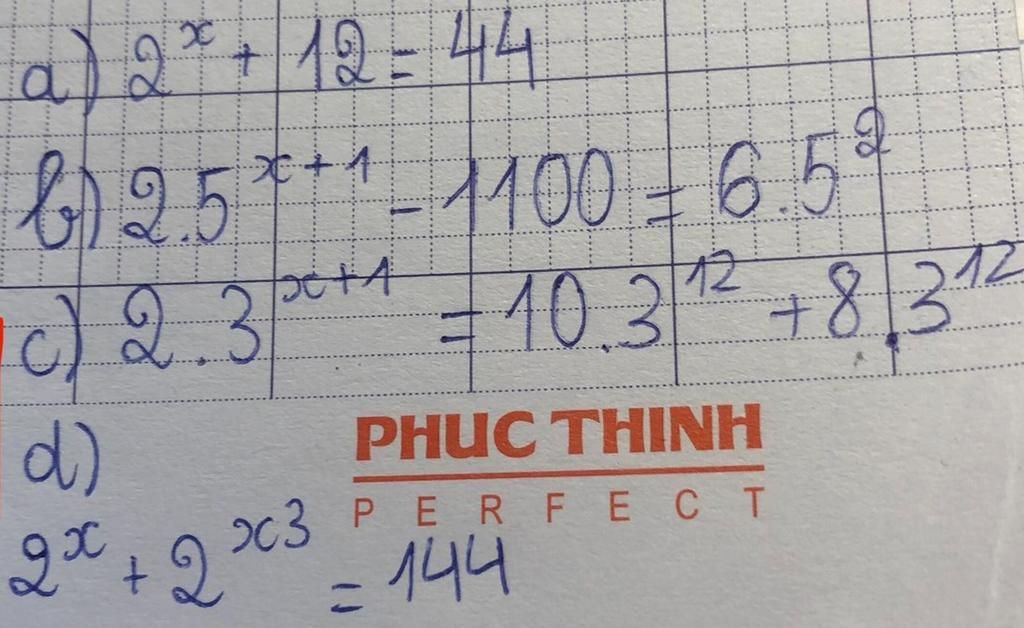 a) 2^x + 12 = 44
b) 2.5^{x+1} - 1100 = 6.5^2
c) 2.3^{x+1} = 10.3^{12} + 8.3^{12}
d)
PHUC THINH
PERFECT
2^x + 2^{x3} = 144